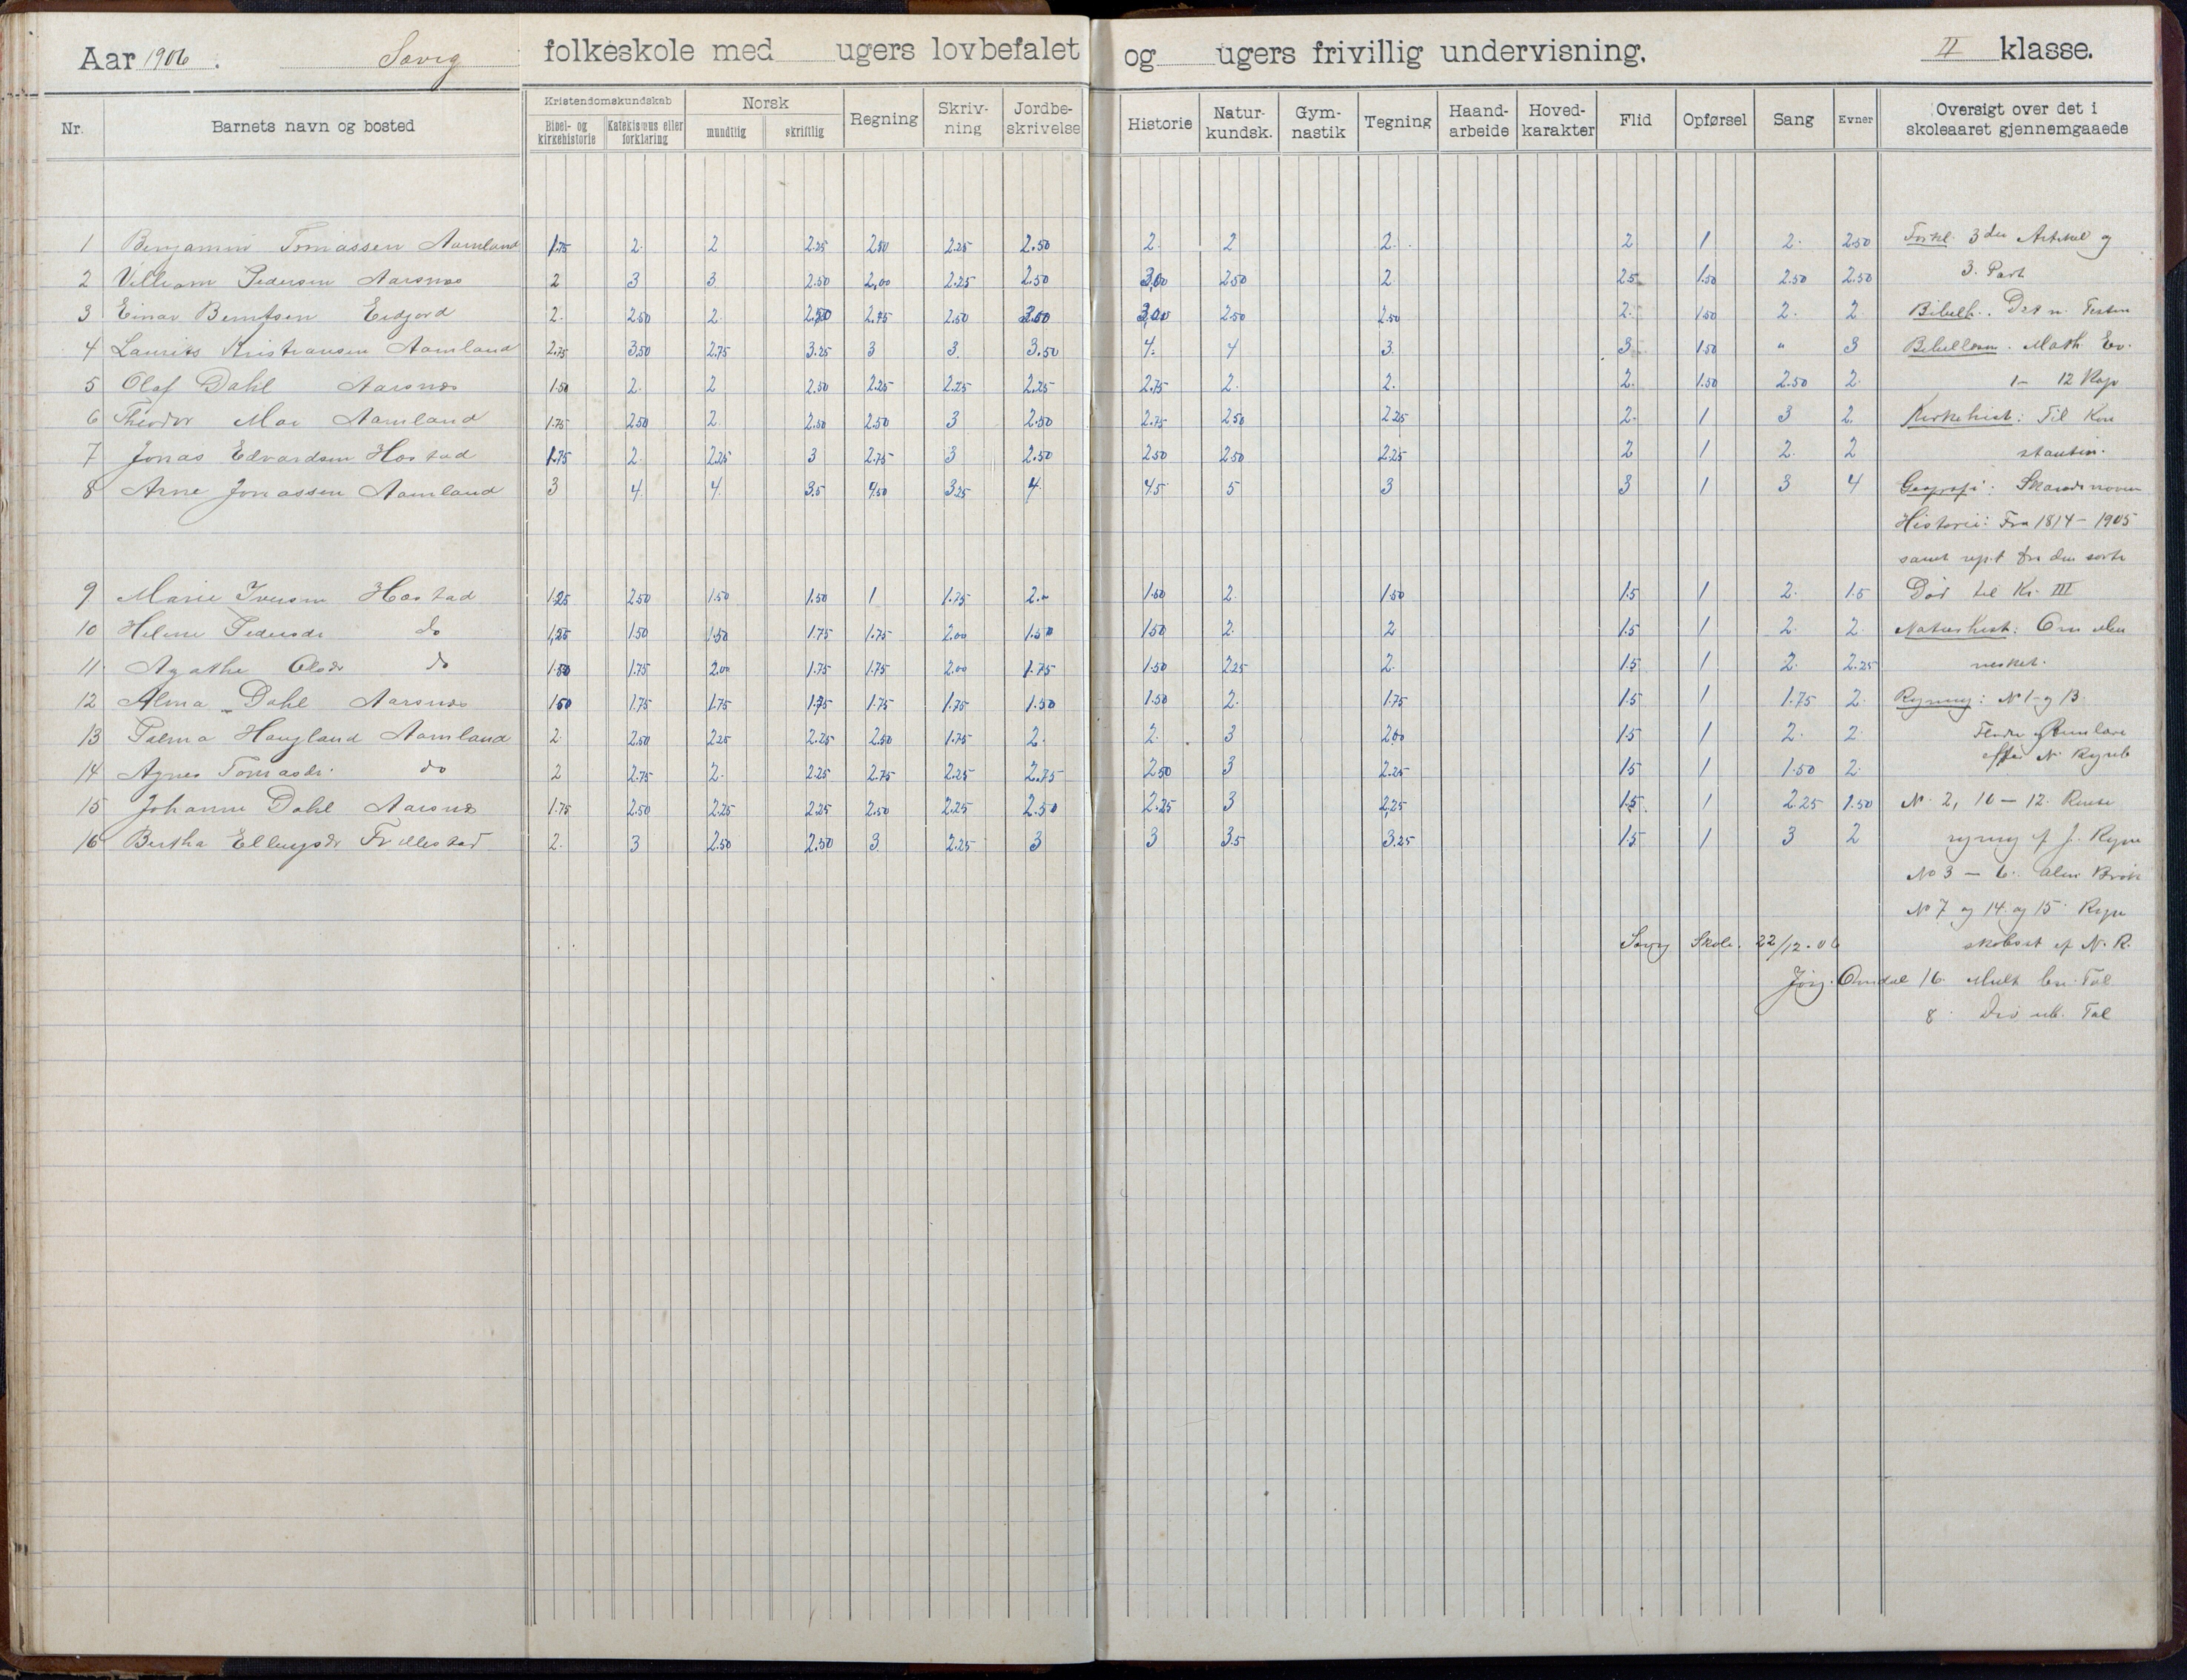 Aar 1906. Søvig folkeskole med ugers lovbefalet og ugers frivillig undervisning. II klasse.
Nr. Barnets navn og bosted Kristendomskundskab Bibel- og kirkehistorie Katekismus eller forklaring Norsk mundtlig skriftlig Regning Skriv-ning Jordbe-skrivelse Historie Natur-kundsk. Gym-nastik Tegning Haand-arbeide Hoved-karakter Flid Opførsel Sang Evner Oversigt over det i skoleaaret gjennemgaaede
1 Benjamin Tomassen Aamland 1.75 2. 2 2.25 2.50 2.25 2.50 2. 2 2. 2 1 2. 2.50
2 Villiam Pedersen Aarsnes 2 3 3 2.50 2,00 2.25 2.50 3,00 2.50 2 2.5 1.50 2.50 2.50
3 Einar Berntsen Eidjord 2. 2.50 2. 2.50 2.75 2.50 3.50 3,00 2.50 2.50 2. 1.50 2. 2
4 Laurits Kristiansen Aamland 2.75 3.50 2.75 3.25 3 3. 3.50 4. 4 3. 3 1.50 " 3
5 Olaf Dahl Aarsnes 1.50 2. 2 2.50 2.25 2.25 2.25 2.75 2. 2. 2. 1.50 2.50 2.
6 Theodor Moi Aamland 1.75 2.50 2. 2.50 2.50 3 2.50 2.75 2.50 2.25 2. 1 3 2.
7 Jonas Edvardsen Hostad 1.75 2. 2.25 3 2.75 3 2.50 2.50 2.50 2.25 2 1 2. 2
8 Arne Jonassen Aamland 3 4. 4. 3.5 4.50 3.25 4. 4.5 5 3 3 1 3 4
9 Marie Iversen Hostad 1.25 2.50 1.50 1.50 1 1.75 2.- 1.50 2. 1.50 1.5 1 2. 1.5
10 Helene Pedersdr do 1,25 1.50 1.50 1.75 1.75 2.00 1.50 1.50 2. 2 1.5 1 2. 2.
11. Agathe Olsdr do 1.50 1.75 2.00 1.75 1.75 2.00 1.75 1.50 2.25 2. 1.5 1 2. 2.25
12 Alma Dahl Aarsnes 1.50 1.75 1.75 1.75 1.75 1.75 1.50 1.50 2. 1.75 1.5 1 1.75 2.
13 Palma Haugland Aamland 2. 2.50 2.25 2.25 2.50 1.75 2. 2. 3 2.00 1.5 1 2. 2.
14 Agnes Tomasdr. do 2 2.75 2. 2.25 2.75 2.25 2.75 2.50 3 2.25 1.5 1 1.50 2.
15 Johanne Dahl Aarsnes 1.75 2.50 2.25 2.25 2.50 2.25 2.50 2.25 3 2.25 1.5. 1 2.25 1.50
16 Bertha Ellingsdr Frillestad 2. 3 2.50 2.50 3 2.25 3 3 3.5 3.25 1.5 1 3 2
Forkl. 3die Artikel og
3. Part
Bibelh. Det n. Testm
Bibellæsn. Math. Ev.
1 - 12 Kap.
Kirkehist: Til Kon
stantin.
Geografi: Skandinavien
Historie: Fra 1814 - 1905
samt rept fra den sorte
Død til Kr. III
Naturhist: Om Men
nesket.
Regning: No 1 og 13.
efter N.
No. 2, 10 - 12. Rente
regning af
No 3 - 6. alm Brøk
No 7 og 14 og 15.
af N. R.
16. Mult
8. Div
Tal
Søvig Skole. 22/12.06
Jørg. Omdal